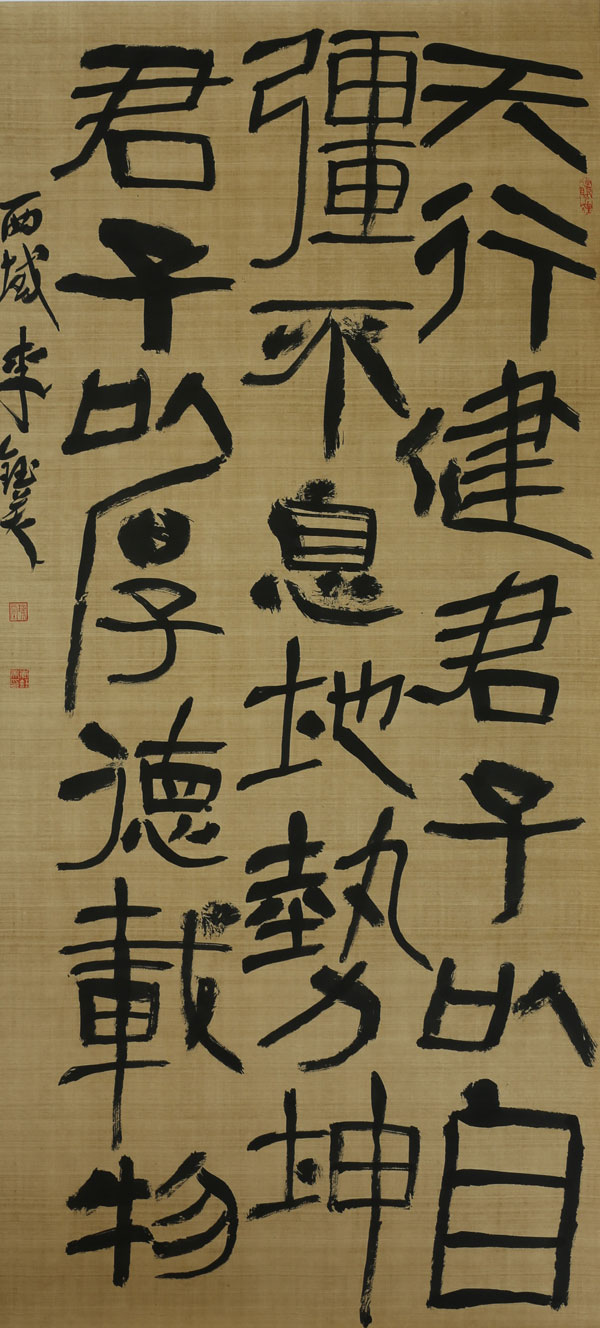 天行健君子以自
彊不息地勢坤
君子以厚德載物
西域李鈺美